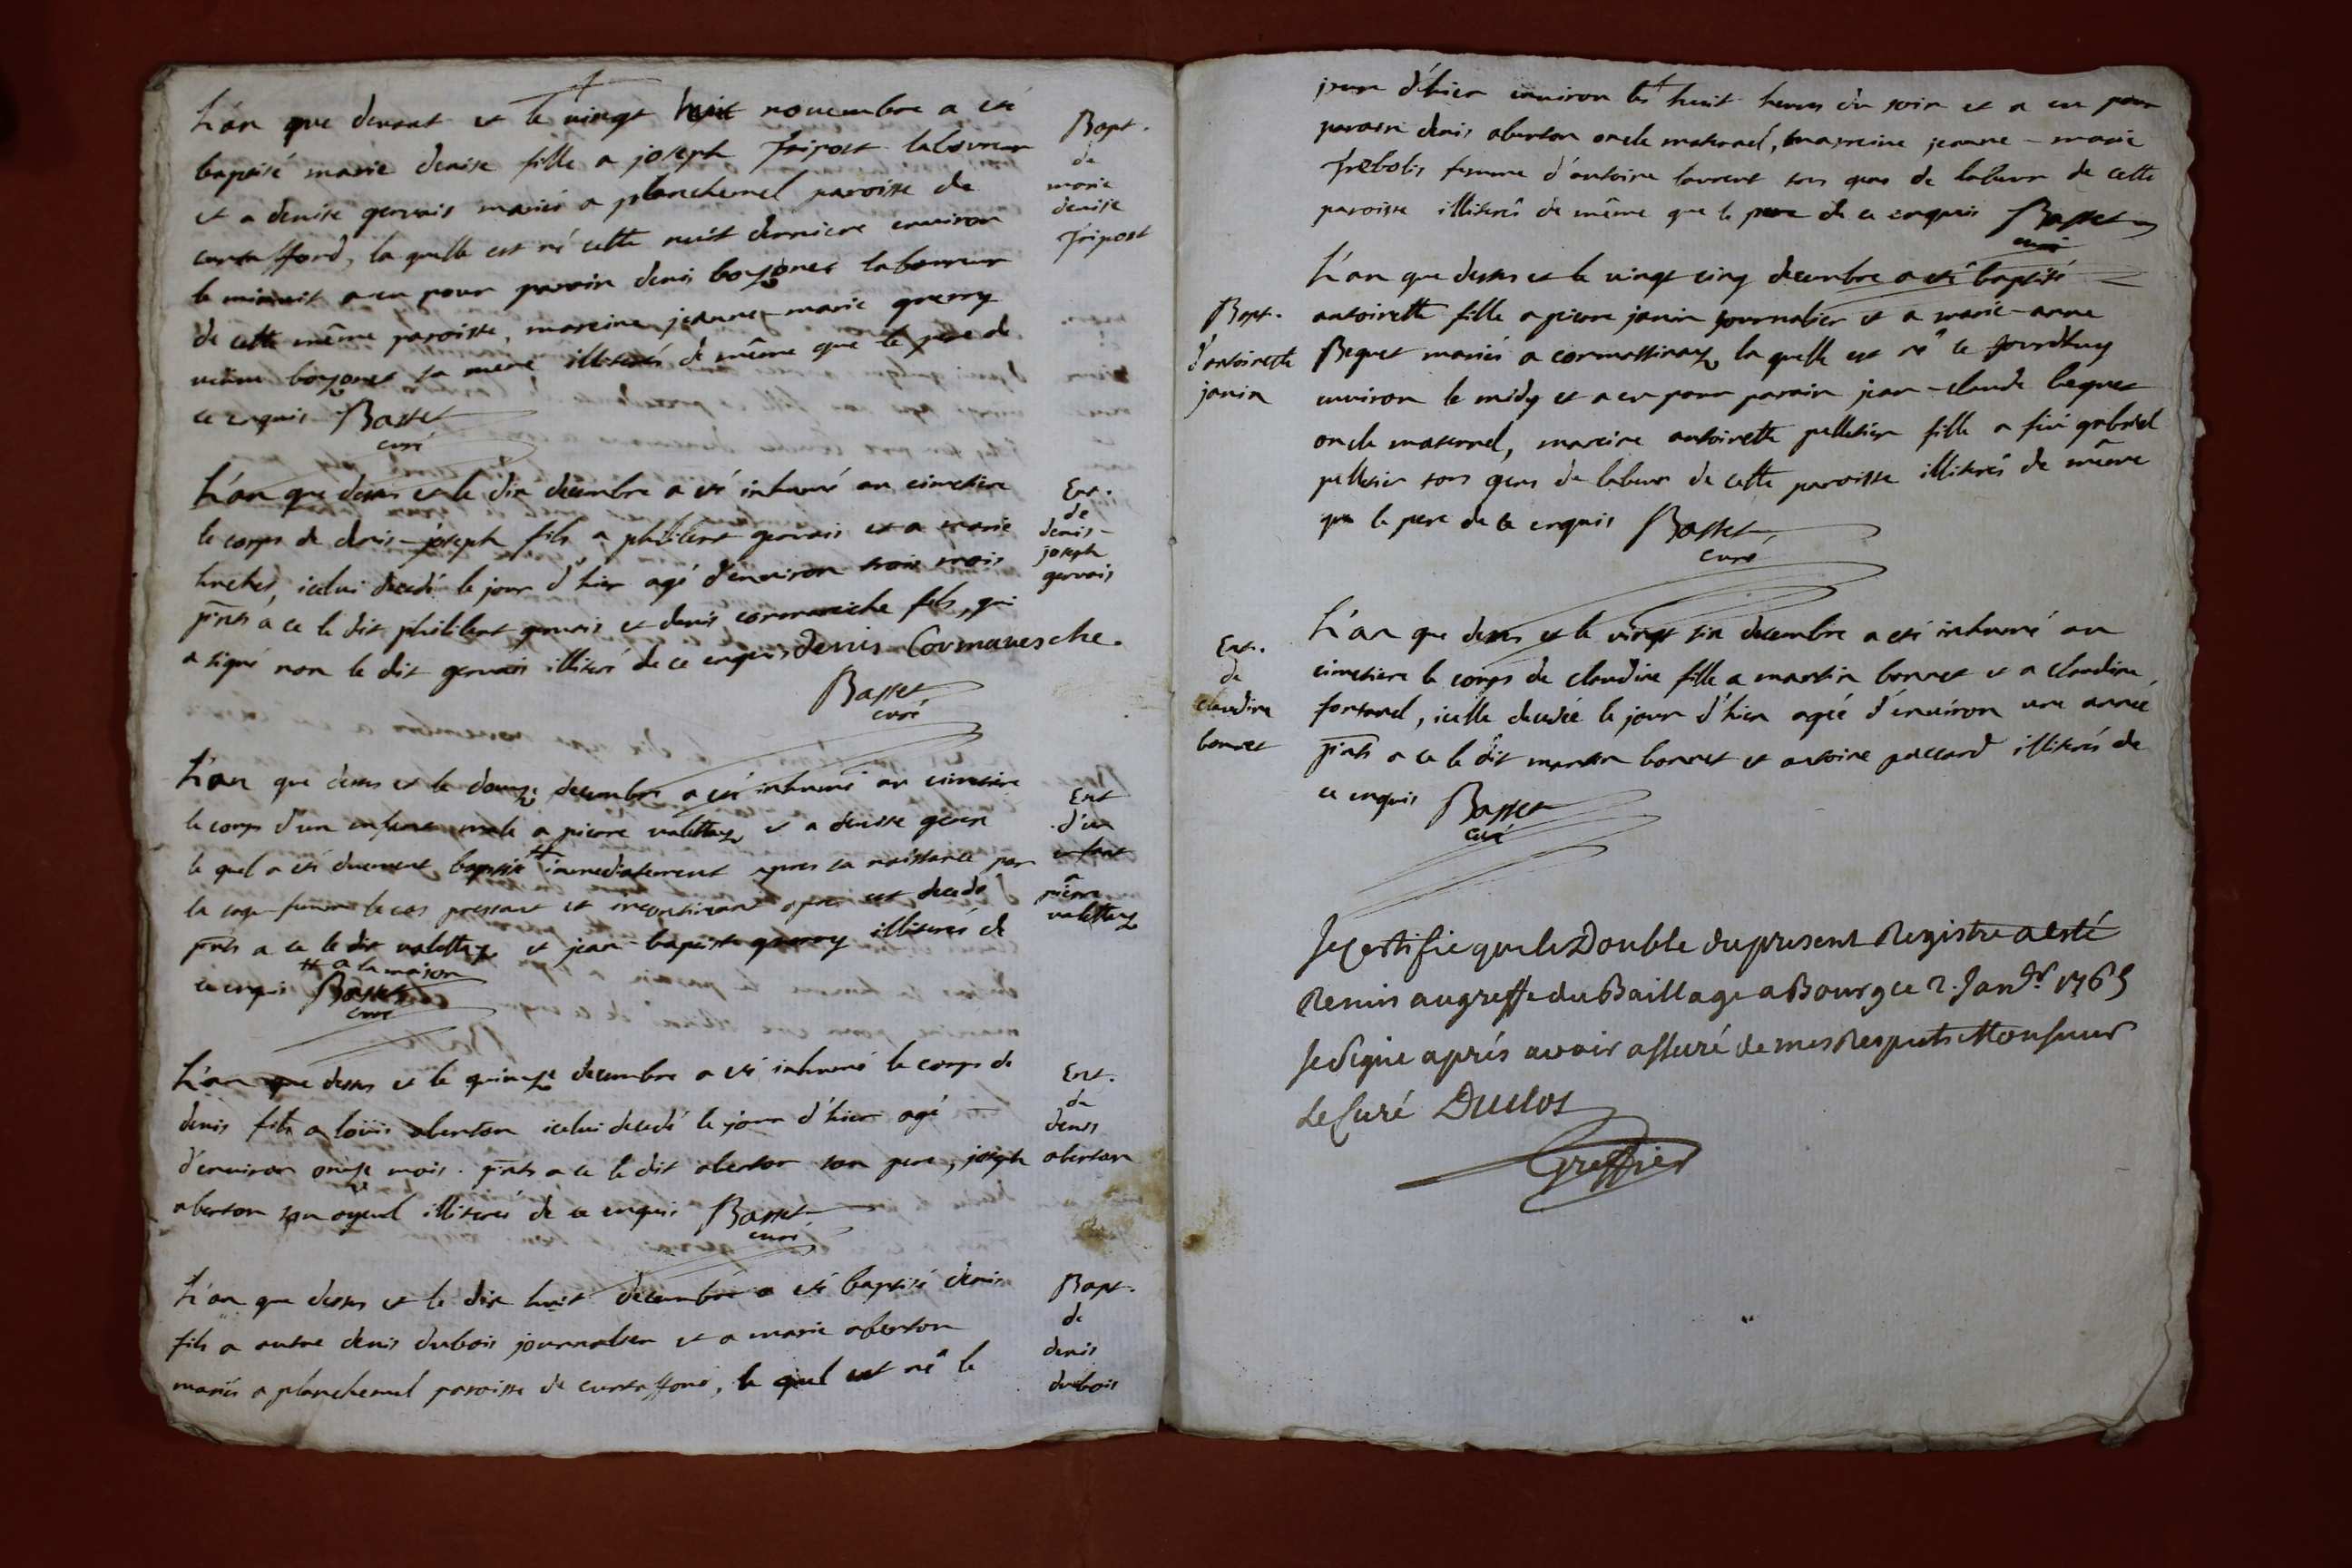 L'an que devant et le vingt huit novembre a eté
baptisé marie denise fille a joseph fripost laboureur
et a denise gervais mariés a planchemel paroisse de
curtaffond, la quelle est né cette nuit derniere environ
le minuit a eu pour parain denis boyzonet laboureur
de cette même paroisse, mareine jeanne-marie querry
boyzonet sa mere illiterés de même que le pere de
ce enquis Basset
curé
Bapt.
de
marie
denise
fripost
L'an que dessus et le dix decembre a eté inhumé au cimetiere
le corps de denis-joseph fils a philibert gervais et a marie
icelui decedé le jour d'hier agé d'environ trois mois
pnts a ce le dit philibert gervais et denis cormareiche fils, qui
a signé non le dit gervais illiteré de ce enquis denis Cormaresche.
Basset
curé
Ent.
de
denis-
joseph
gervais
L'an que dessus et le douze decembre a eté inhumé au cimetiere
le corps d'un enfant male a pierre valettaz et a denisse
le quel a eté duement baptisé # immediatement apres sa naissance par
la sage-femme le cas pressant et incontinant apres est decedé
pnts a ce le dit valettaz et jean-baptiste querry illiterés de
# a la maison
ce enquis Basset
curé
Ent
d'un
enfant
pierre
valettaz
L'an que dessus et le quinze decembre a eté inhumé le corps de
denis fils a loüis aberton icelui decedé le jour d'hier agé
d'environ onze mois. pnts a ce le dit aberton son pere, joseph
aberton son ayeul illiterés de ce enquis Basset
curé
Ent.
de
denis
aberton
L'an que dessus et le dix huit decembre a eté baptisé denis
fils a autre denis dubois journalier et a marie aberton
mariés a planchemel paroisse de curtaffond, le quel est né le
Bapt.
de
denis
dubois
jour d'hier environ les huit heures du soir et a eu pour
parain denis aberton oncle maternel, mareine jeanne-marie
femme d'antoine laurent tous gens de labeur de cette
paroisse illiterés de même que le pere de ce enquis Basset
curé
L'an que dessus et le vingt cinq decembre a eté baptisé
antoinette fille a pierre janin journalier et a marie-anne
Beguet mariés a cormassinaz la quelle est né ce jourdhuy
environ le midy et a eu pour parain jean-claude beguet
oncle maternel, mareine antoinette pelletier fille a feu gabriel
pelletier tous gens de labeur de cette paroisse illiterés de même
que le pere de ce enquis Basset
curé
Bapt.
d'antoinette
janin
L'an que dessus et le vingt six decembre a eté inhumé au
cimetiere le corps de claudine fille a martin bonnet et a claudine
fortanel, icelle decedée le jour d'hier agée d'environ une année
pnts a ce le dit martin bonnet et antoine illiterés de
ce enquis Basset
curé
Ent.
de
claudine
bonnet
Je Certifie que le Double du present Registre a esté
Remis au greffe du Baillage a Bourg ce 2. Janvr. 1765
Je signe aprés avoir assuré de mes Respects Monsieur
Le Curé Duclos
Greffier